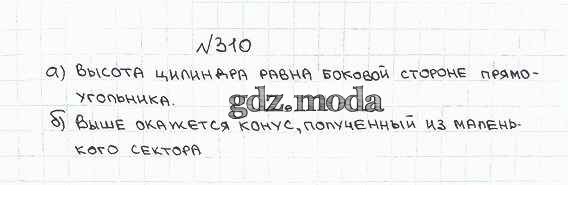 №310
а) ВЫСОТА ЦИЛИНДРА РАВНА БОКОВОЙ СТОРОНЕ ПРЯМО-
УГОЛЬНИКА.
gdz.moda
б) ВЫШЕ ОКАЖЕТСЯ КОНУС, ПОЛУЧЕННЫЙ ИЗ МАЛЕНЬ-
КОГО СЕКТОРА